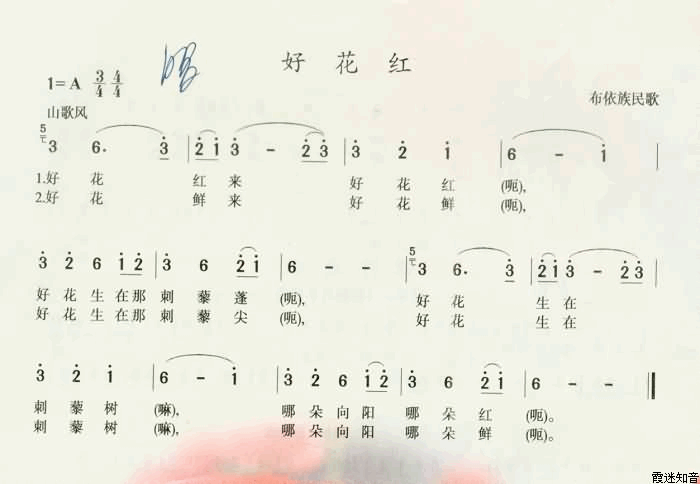 好花红
1=A 3/4 4/4
布依族民歌
山歌风
5 3 6. 3 | 2 1 3 - 2 3 | 3 2 1 | 6 - 1 |
1.好 花 红 来 好 花 红 (呃),
2.好 花 鲜 来 好 花 鲜 (呃),
3 2 6 1 2 | 3 6 2 1 | 6 - - | 5 3 6. 3 | 2 1 3 - 2 3 |
好 花 生 在 那 刺 藜 蓬 (呃), 好 花 生 在
好 花 生 在 那 刺 藜 尖 (呃), 好 花 生 在
3 2 1 | 6 - 1 | 3 2 6 1 2 | 3 6 2 1 | 6 - -
刺 藜 树 (嘛), 哪 朵 向 阳 哪 朵 红 (呃)。
刺 藜 树 (嘛), 哪 朵 向 阳 哪 朵 鲜 (呃)。
霞迷知音